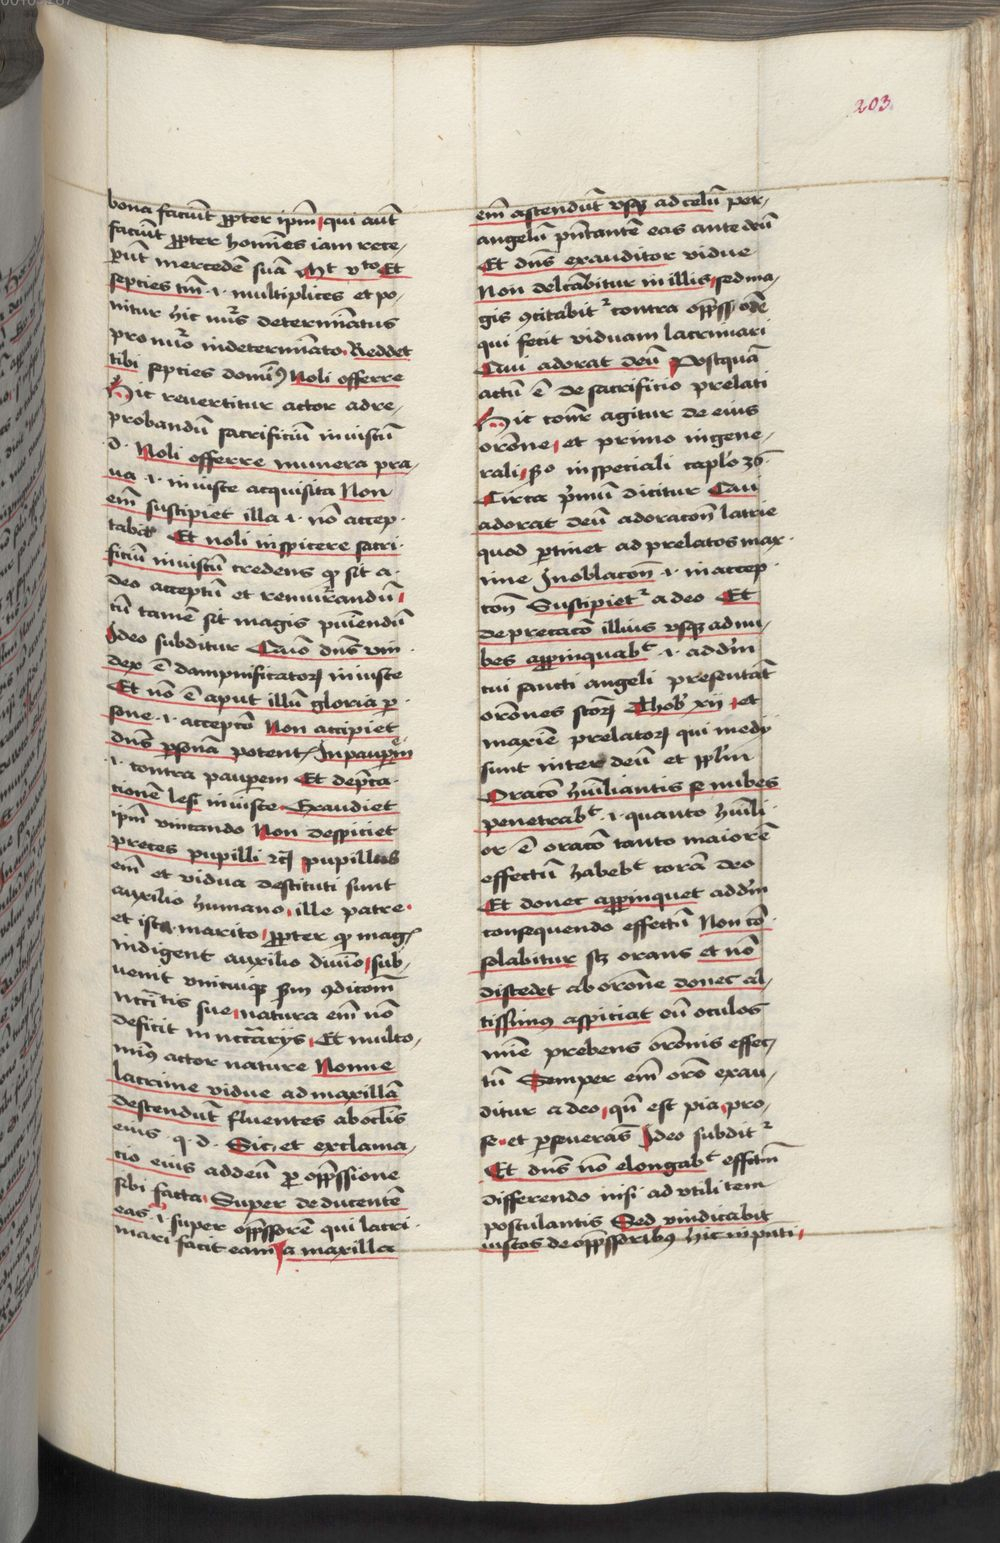 203
bona faciūt ꝓpter ipm̄ qui autē
faciūt ꝓpter homines iam rece-
perūt mercedē suā Mt vͭᵒ Et
septies tm̄ .i. multiplices et po-
nitur hic nūs determinatus
pro nūo indeterminato Reddet
tibi septies domīꝰ Noli offerre
Hic reuertitur actor ad re-
probandū sacrificiū iniustū
d. Noli offerre munera pra-
ua .i. iniuste acquisita Non
em̄ suscipiet illa .i. nō accep-
tabit Et noli inspicere sacri-
ficiū iniustū credens ꝙ sit a
deo acceptū et remunerandū
cū tamē sit magis puniendū
Ideo subditur Qm̄ dn̄s vin-
dex ē dampnificatoꝝ iniuste
Et nō ē aput illū gloria per-
sone .i. acceptō Non accipiet
dn̄s ꝑsonā potent In pauperē
.i. contra pauperem Et depca-
tionē lesi iniuste Exaudiet
ipm̄ vincando Non despiciet
preces pupilli ꝛcͣ pupillus
em̄ et vidua destituti sunt
auxilio humano ille patre
et ista marito ꝓpter ꝙ mag
indigent auxilio diuīo sub-
uenit vnicuiqꝫ scdm ꝯdicōm
nccītis sue natura em̄ nō
deficit in nccārijs Et multo
minꝰ actor nature Nonne
lacrime vidue ad maxillā
descendūt fluentes ab oclīs
eius q. d. Sic et exclama-
tio eius ad deū ꝓ opp̄ssione
sibi facta Super deducentē
eas .i. super opp̄ssorē qui lacri-
mari facit eam a maxilla
em̄ ascendūt vsqꝫ ad celū per
angelū pn̄tantē eas ante deū
Et dn̄s exauditor vidue
Non delcābitur in illis sed ma-
gis ꝯcitabitᷣ contra opp̄ssorē
qui fecit viduam lacrimari
Qui adorat deū Postquā
actū ē de sacrificio prelati
Hic cōnr agitur de eius
orōne et primo in gene-
rali scdo in speciali caplo 36
Circa p̄mū dicitur Qui
adorat deū adoracōn latrie
quod ꝑtinet ad prelatos max-
ime In oblacōn .i. in accep-
tōn Suscipietᷣ a deo Et
deprecacō illius vsqꝫ ad nu-
bes appinquabͭ .i. ad dm̄
cui sancti angeli presentāt
orōnes sctoꝝ Thob xij et
maxīe prelatoꝝ qui medij
sunt inter deū et pplm̄
Oracō humiliantis se nubes
penetrabͭ .i. quanto humili-
or ē oracō tanto maiorē
effectū habebͭ corā deo
Et donec appinquet ad dm̄
consequendo effectū Non cō-
solabitur scꝫ orans et nō
discedet ab orōne donec al-
tissimꝰ aspiciat eū oculos
mīe prebens orōnis effec-
tū Semper em̄ orō exau-
ditur a deo qn̄ est pia pro
se et ꝑseuerās Ideo subditᷣ
Et dn̄s nō elongabͭ effcm̄
differendo nisi ad vtilitem
postulantis Sed vindicabit
iustos de opp̄ssoribꝰ hic in pn̄ti